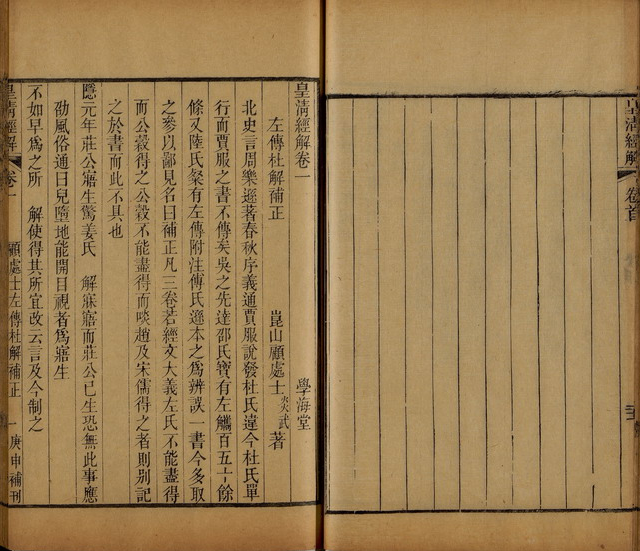 皇清經解 卷首
皇清經解卷一 學海堂
左傳杜解補正 崑山顧處士炎武著
北史言周樂遜著春秋序義通賈服說發杜氏違今杜氏單
行而賈服之書不傳矣吳之先達邵氏寶有左觿百五十餘
條又陸氏粲有左傳附注傅氏遜本之爲辨誤一書今多取
之參以鄙見名曰補正凡三卷若經文大義左氏不能盡得
而公穀得之公穀不能盡得而啖趙及宋儒得之者則別記
之於書而此不具也
隱元年莊公寤生驚姜氏 解寐寤而莊公已生恐無此事應
劭風俗通曰兒墮地能開目視者爲寤生
不如早爲之所 解使得其所宜改云言及今制之
皇清經解 卷一 顧處士左傳杜解補正 一 庚申補刊